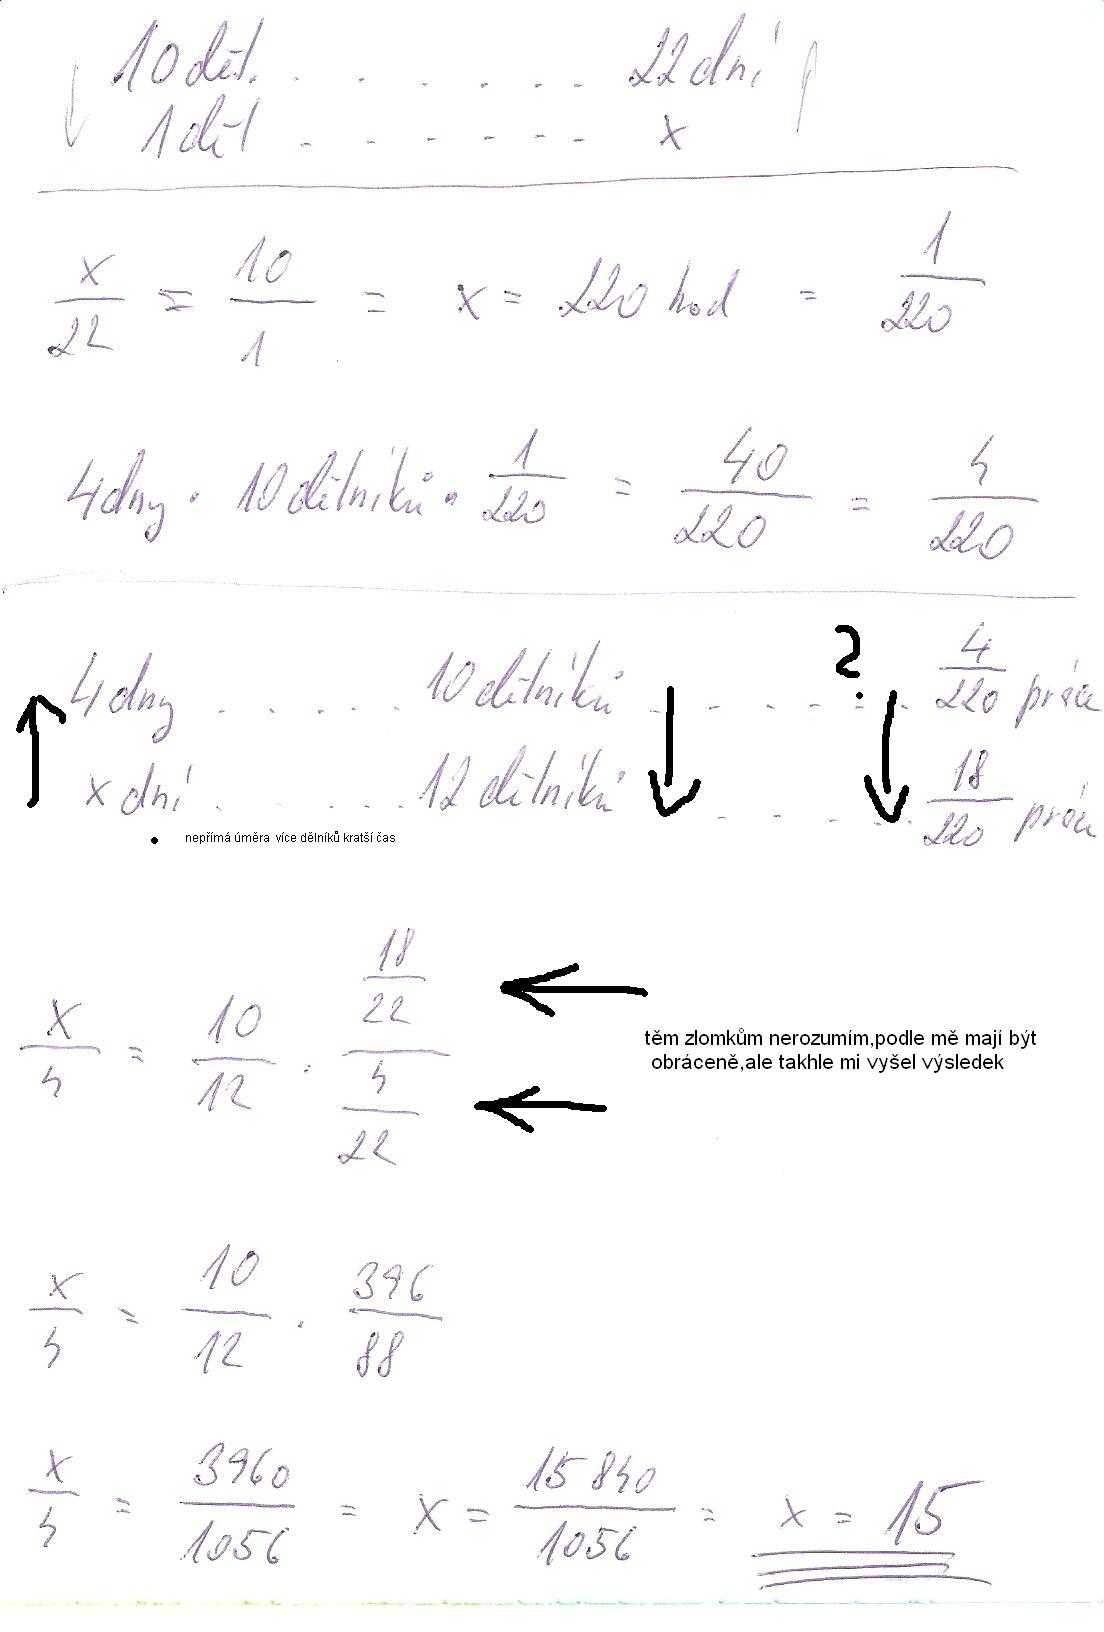 10 děl. . . . . . . 22 dní
1 děl . . . . . . x
x/22 = 10/1 = x = 220 hod = 1/220
4 dny . 10 dělníků . 1/220 = 40/220 = 4/220
4 dny . . . . . 10 dělníků . . . . . . 4/220 práce
?
x dní . . . . . 12 dělníků . . . . . 18/220 práce
• nepřímá úměra více dělníků kratší čas
x/4 = 10/12 . 18/22 / 4/22
těm zlomkům nerozumím,podle mě mají být
obráceně,ale takhle mi vyšel výsledek
x/4 = 10/12 . 396/88
x/4 = 3960/1056 = x = 15 840/1056 = x = 15